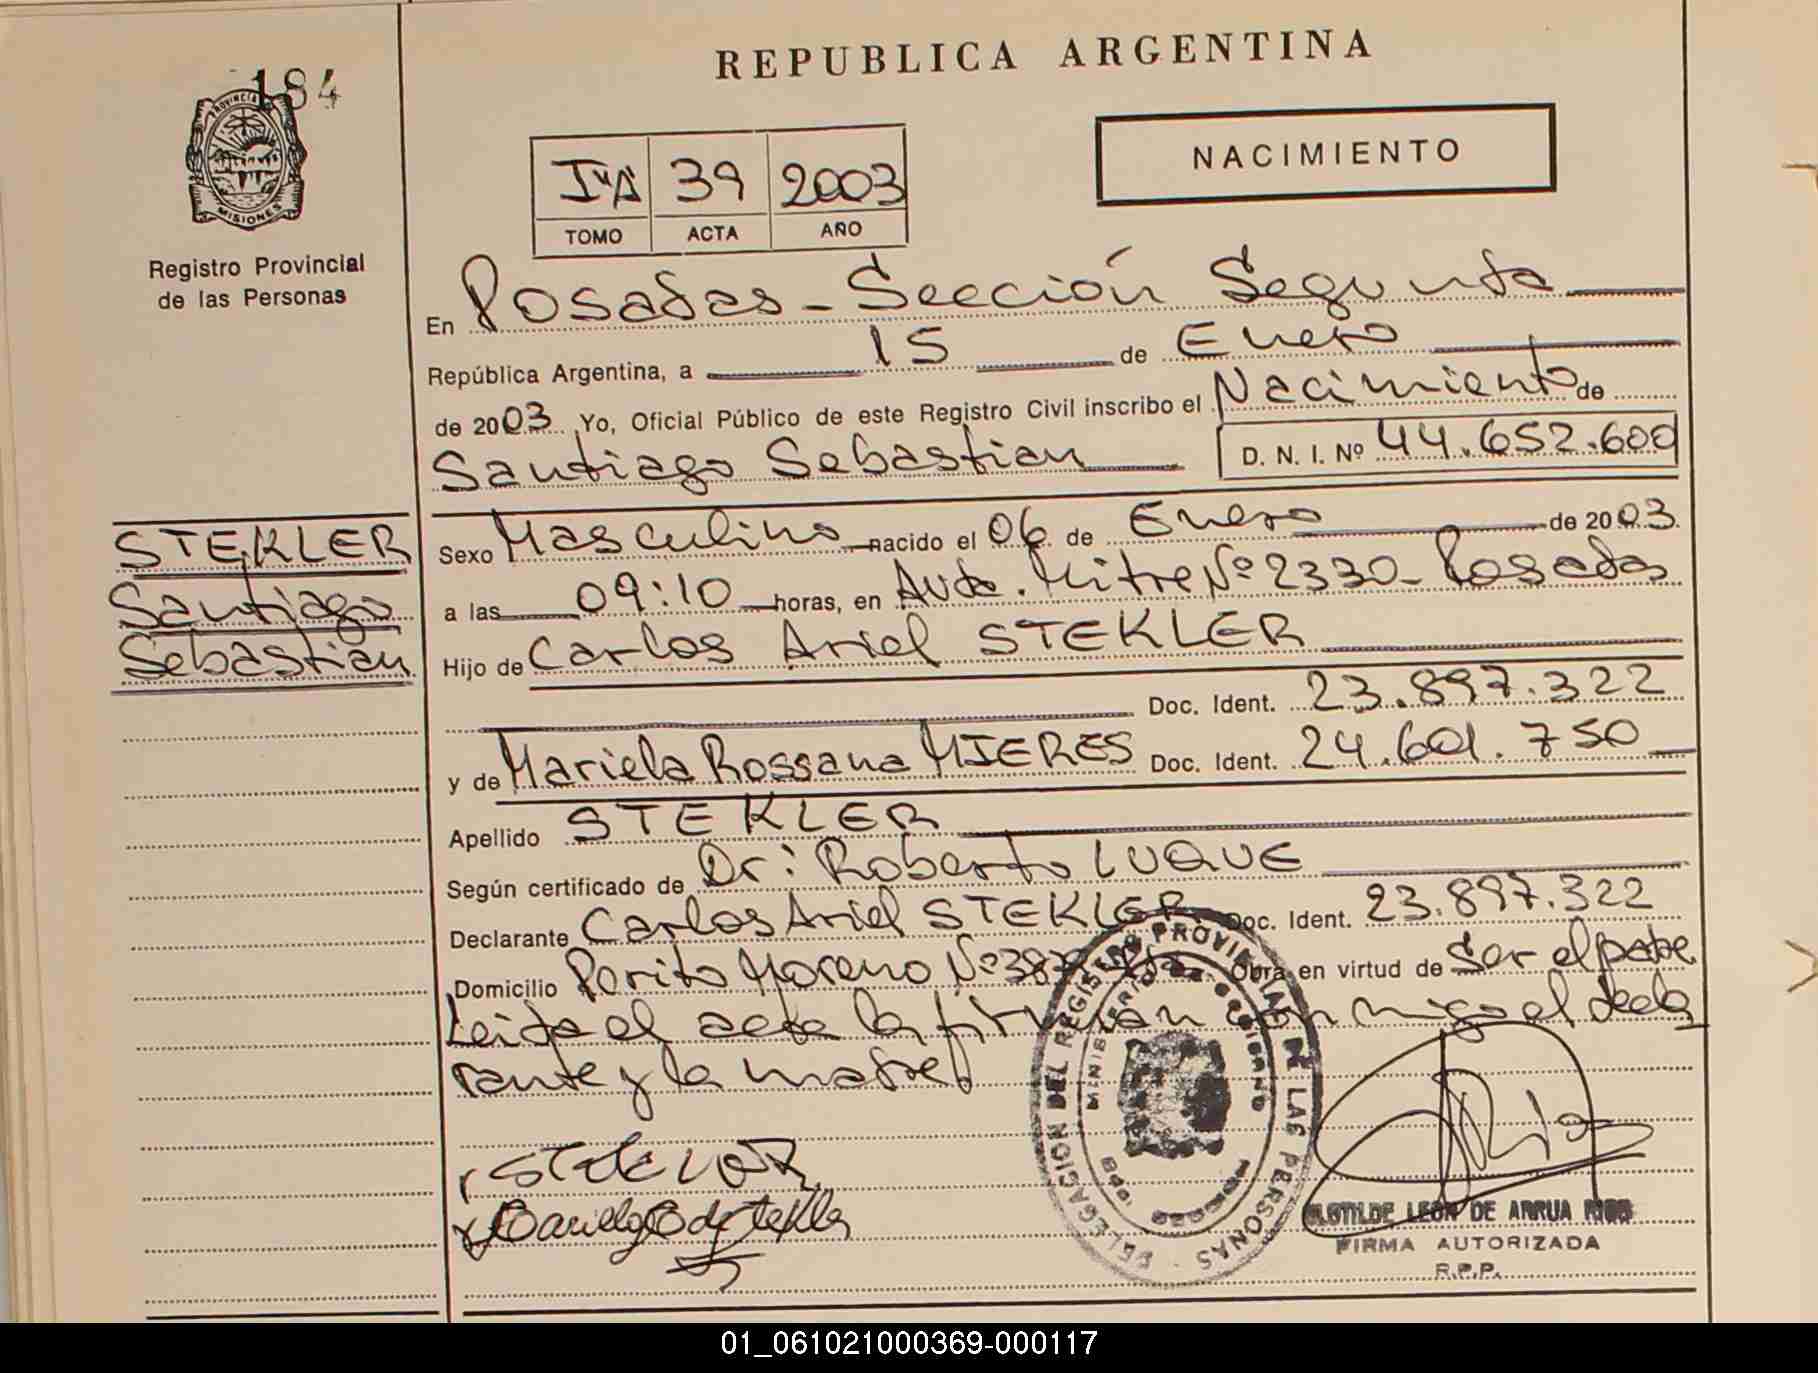 184
PROVINCIA
MISIONES
Registro Provincial
de las Personas
REPUBLICA ARGENTINA
NACIMIENTO
39 2003
TOMO ACTA AÑO
En Posadas - Sección Segunda
República Argentina, a 15 de Enero
de 2003 Yo, Oficial Público de este Registro Civil inscribo el Nacimiento de
Santiago Sebastian D. N. I. Nº 44.652.600
STEKLER
Santiago
Sebastian
Sexo Masculino nacido el 06 de Enero de 2003.
a las 09:10 horas, en Avda. Mitre Nº 2330 - Posadas
Hijo de Carlos Ariel STEKLER
Doc. Ident. 23.897.322
y de Mariela Rossana MIERES Doc. Ident. 24.601.750
Apellido STEKLER
Según certificado de Dr: Roberto LUQUE
Declarante Carlos Ariel STEKLER Doc. Ident. 23.897.322
Domicilio Perito Moreno Nº Obra en virtud de Ser el padre
Leida el acta la firman conmigo el decla
rante y la madre.
STEKLER
DELEGACION DEL REGISTRO PROVINCIAL DE LAS PERSONAS
MINISTERIO DE GOBIERNO
CLOTILDE LEON DE ARRUA RIOS
FIRMA AUTORIZADA
R.P.P.
01_061021000369-000117